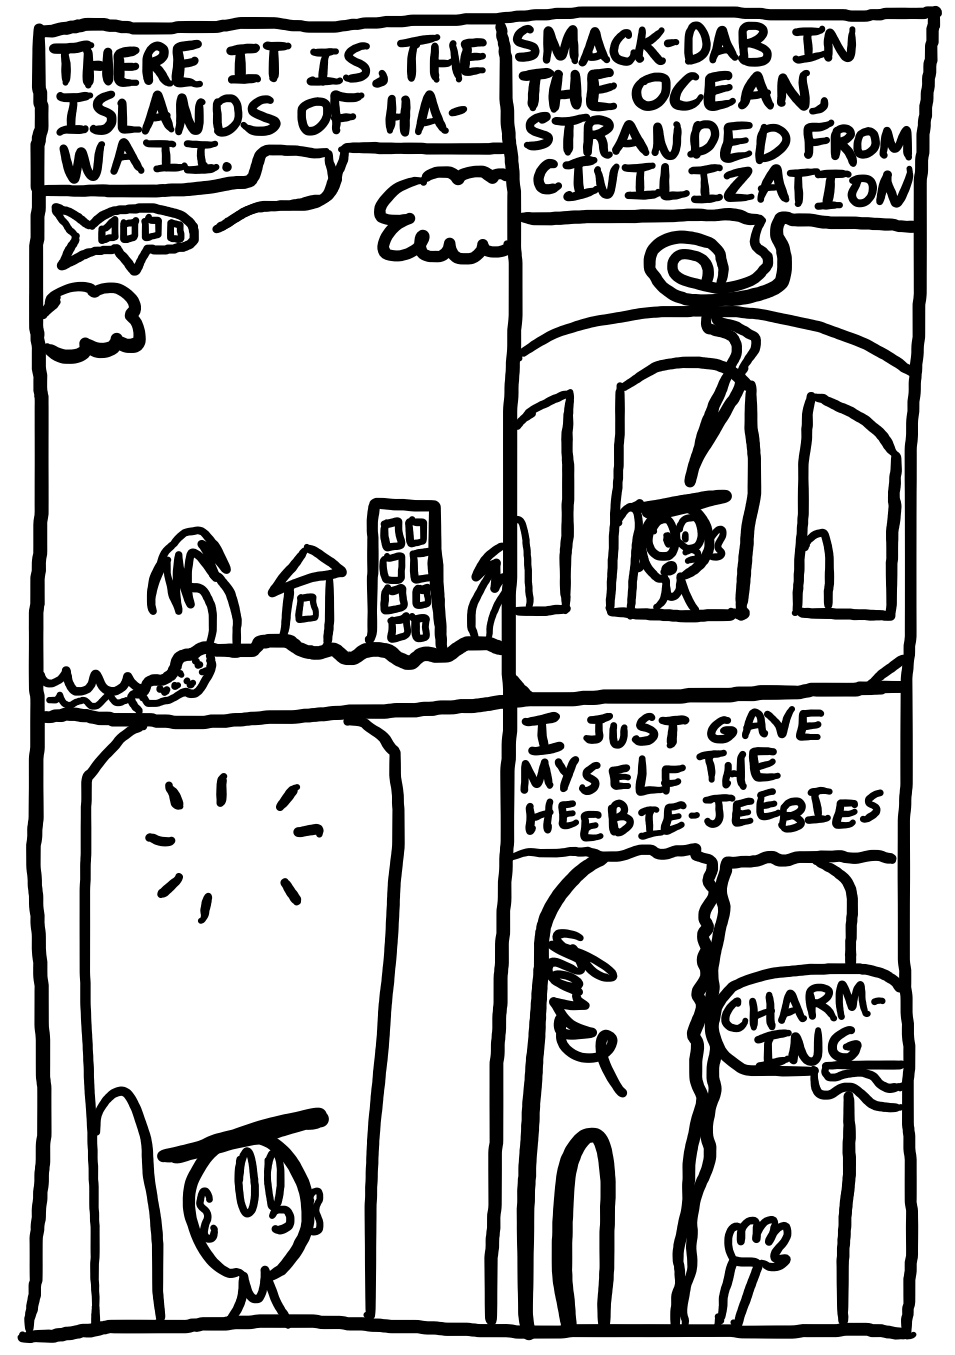 THERE IT IS, THE
ISLANDS OF HA-
WAII.
SMACK-DAB IN
THE OCEAN,
STRANDED FROM
CIVILIZATION
I JUST GAVE
MYSELF THE
HEEBIE-JEEBIES
CHARM-
ING